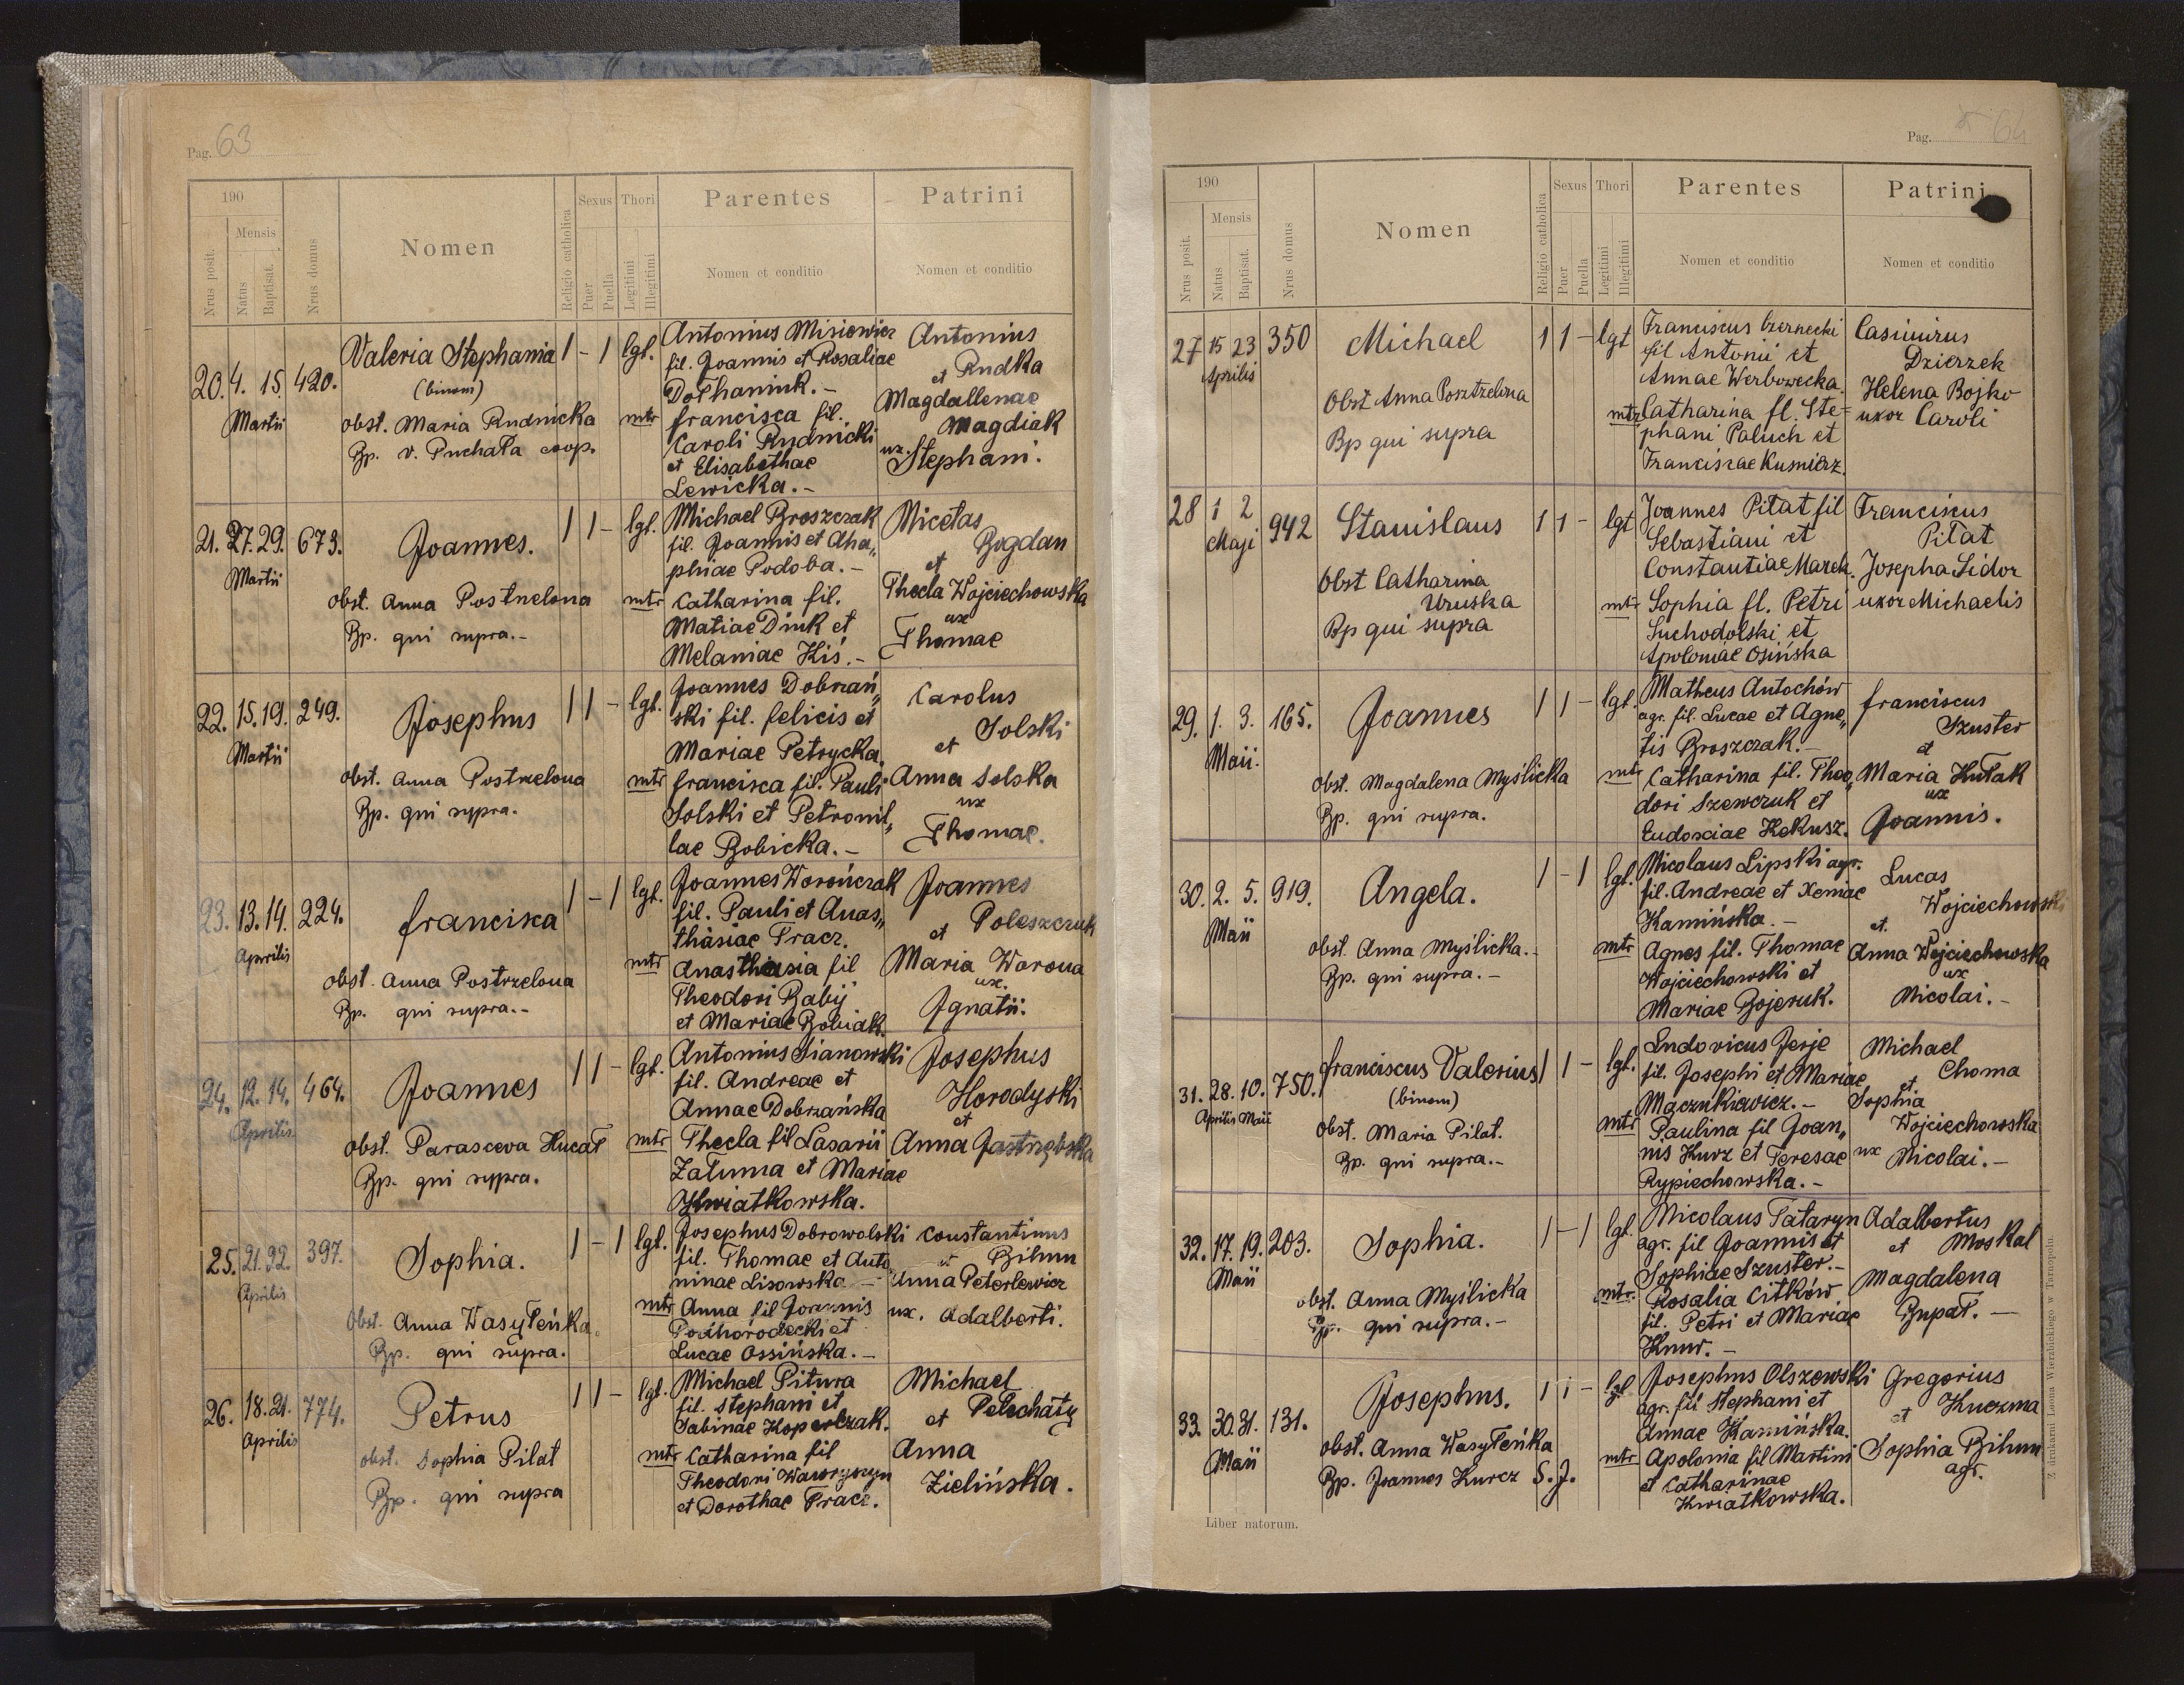 Pag. 63
190
Nrus posit.
Mensis
Natus
Baptisat.
Nrus domus
Nomen
Religio catholica
Sexus
Puer
Puella
Thori
Legitimi
Illegitimi
Parentes
Nomen et conditio
Patrini
Nomen et conditio
20. 4. 15. 420.
Martii
Valeria Stephania 1 - 1 lgt.
(binom)
obst. Maria Rudnicka
Bp. v. Puchała coop.
Antonius Misiewicz
fil. Joannis et Rosaliae
Dołhaniuk. -
mtr Francisca fil.
Caroli Rudnicki
et Elisabethae
Lewicka. -
Antonius
et Rudka
Magdallenae
Magdiak
ux. Stephani.
21. 27. 29. 673.
Martii
Joannes. 1 1 - lgt.
obst. Anna Postnelona
Bp. qui supra. -
Michael Broszczak
fil. Joannis et Aha„
phiae Podoba. -
mtr Catharina fil.
Matiae Diuk et
Melaniae Kiś. -
Micetas
Bogdan
et
Thecla Wojciechowska
ux
Thomae
22. 15. 19. 249.
Martii
Josephus 1 1 - lgt.
obst. Anna Postrzelona
Bp. qui supra.
Joannes Dobrzań„
ski fil. Felicis et
Mariae Petrycka.
mtr Francisca fil. Pauli
Solski et Petronil„
lae Bobicka. -
Carolus
Solski
et
Anna Solska
ux
Thomae.
23. 13. 14. 224.
Aprilis
Francisca 1 - 1 lgt.
obst. Anna Postrzelona
Bp. qui supra. -
Joannes Worończak
fil. Pauli et Anas„
thasiae Tracz.
mtr Anasthasia fil
Theodori Babij
et Mariae Bobiak.
Joannes
Poleszczuk
et
Maria Warona
ux.
Ignatii.
24. 12. 14. 464.
Aprilis
Joannes 1 1 - lgt.
obst. Parasceva Hucał
Bp. qui supra.
Antonius Sianowski
fil. Andreae et
Annae Dobrzańska
mtr Thecla fil Lasarii
Załuma et Mariae
Kwiatkowska.
Josephus
Horodyski
et
Anna Jastrzębska
25. 21. 22. 397.
Aprilis
Sophia. 1 - 1 lgt.
Obst. Anna Wasyleńka.
Bp. qui supra.
Josephus Dobrowolski
fil. Thomae et Anto„
ninae Lisowska -
mtr Anna fil Joannis
Podhorodecki et
Lucae Ossińska. -
Constantinus
et Bihun
Anna Peterlewicz
ux. Adalberti.
26. 18. 21. 774.
Aprilis
Petrus 1 1 - lgt.
obst. Sophia Pilat
Bp. qui supra
Michael Pitura
fil. Stephani et
Sabinae Koperlczak.
mtr Catharina fil
Theodori Wawryszyn
et Dorothae Tracz.
Michael
et Pelechaty
Anna
Zielińska.
Pag. 64
190
Nrus posit.
Mensis
Natus
Baptisat.
Nrus domus
Nomen
Religio catholica
Sexus
Puer
Puella
Thori
Legitimi
Illegitimi
Parentes
Nomen et conditio
Patrini
Nomen et conditio
27 15 23 350
Aprilis
Michael 1 1 - lgt
Obst Anna Posztzelina
Bp qui supra
Franciscus Czernecki
fil Antonii et
Annae Werbowecka.
mtr Catharina fl. Ste=
phani Paluch et
Franciscae Kusnierz.
Casimirus
Dzierzek
Helena Bojko
uxor Caroli
28 1 2 942
Maji
Stanislaus 1 1 - lgt
Obst Catharina
Uruska
Bp qui supra
Joannes Piłat fil
Sebastiani et
Constantiae Marek.
mtr Sophia fl. Petri
Suchodolski et
Apoloniae Osińska
Franciscus
Piłat
Josepha Sidor
uxor Michaelis
29. 1. 3. 165.
Maii.
Joannes 1 1 - lgt.
obst. Magdalena Myślicka
Bp. qui supra.
Matheus Antochów
agr. fil. Lucae et Agne„
tis Broszczak. -
mtr Catharina fil. Theo„
dori Szewczuk et
Eudosciae Kekusz.
Franciscus
Szuster
et
Maria Hułak
ux
Joannis.
30. 2. 5. 919.
Maii
Angela. 1 - 1 lgt.
obst. Anna Myślicka. -
Bp. qui supra. -
Micolaus Lipski agr.
fil. Andreae et Xeniae
Kamińska. -
mtr Agnes fil. Thomae
Wojciechowski et
Mariae Bojczuk.
Lucas
Wojciechowski
et.
Anna Wojciechowska
ux
Micolai. -
31. 28. 10. 750.
Aprilis Maii
Franciscus Valerius 1 1 - lgt.
(binom)
obst. Maria Pilat.
Bp. qui supra. -
Ludovicus Jesje
fil. Josephi et Mariae
Maczukiewicz. -
mtr Paulina fil Joan„
nis Kurz et Teresae
Rypiechowska. -
Michael
Choma
et.
Sophia
Wojciechowska
ux Micolai. -
32. 17. 19. 203.
Maii
Sophia. 1 - 1 lgt.
obst. Anna Myślicka
Bp. qui supra. -
Micolaus Tataryn
agr. fil Joannis et
Sophiae Szuster. -
mtr. Rosalia Citków
fil. Petri et Mariae
Knur. -
Adalbertus
et Moskal
Magdalena
Bupał. -
33. 30. 31. 131.
Maii
Josephus. 1 1 - lgt.
obst. Anna Wasyleńka
Bp. Joannes Kurcz S. J.
Josephus Olszewski
agr. fil Stephani et
Annae Kamińska.
mtr Apolonia fil Martini
et Catharinae
Kwiatkowska.
Gregorius
et Kuczma
Sophia Bihun
agr.
Liber natorum.
Z drukarni Leona Wierzbickiego w Tarnopolu.